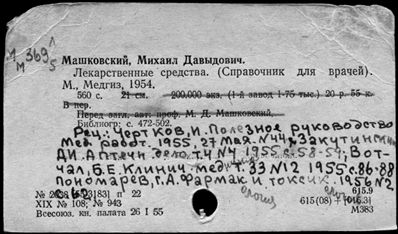 М 369 л
М 5
Машковский, Михаил Давыдович.
Лекарственные средства. (Справочник для врачей).
М., Медгиз, 1954.
560 с. 21 см. 200.000 экз. (1-й завод 1-75 тыс.) 20 р. 55 к.
В пер.
Перед загл. авт: проф. М. Д. Машковский.
Библиогр: с. 472-502.
Рец.: Чертков, И. Полезное руководство
Мед. работ. 1955, 27 мая. №44; Закутинский
Д.И. Аптечн. дело. т.4 №4 1955 с.58-59; Вот-
чал, Б.Е. Клинич. мед. т.33 №12 1955 с.86-88
Пономарев, Г.А. Фармак и токсик. 1956 №2
с 62
№ 2638 п 22 615.9
XIX № 108; № 943 615(08)
Всесоюз. кн. палата 26 I 55 М383